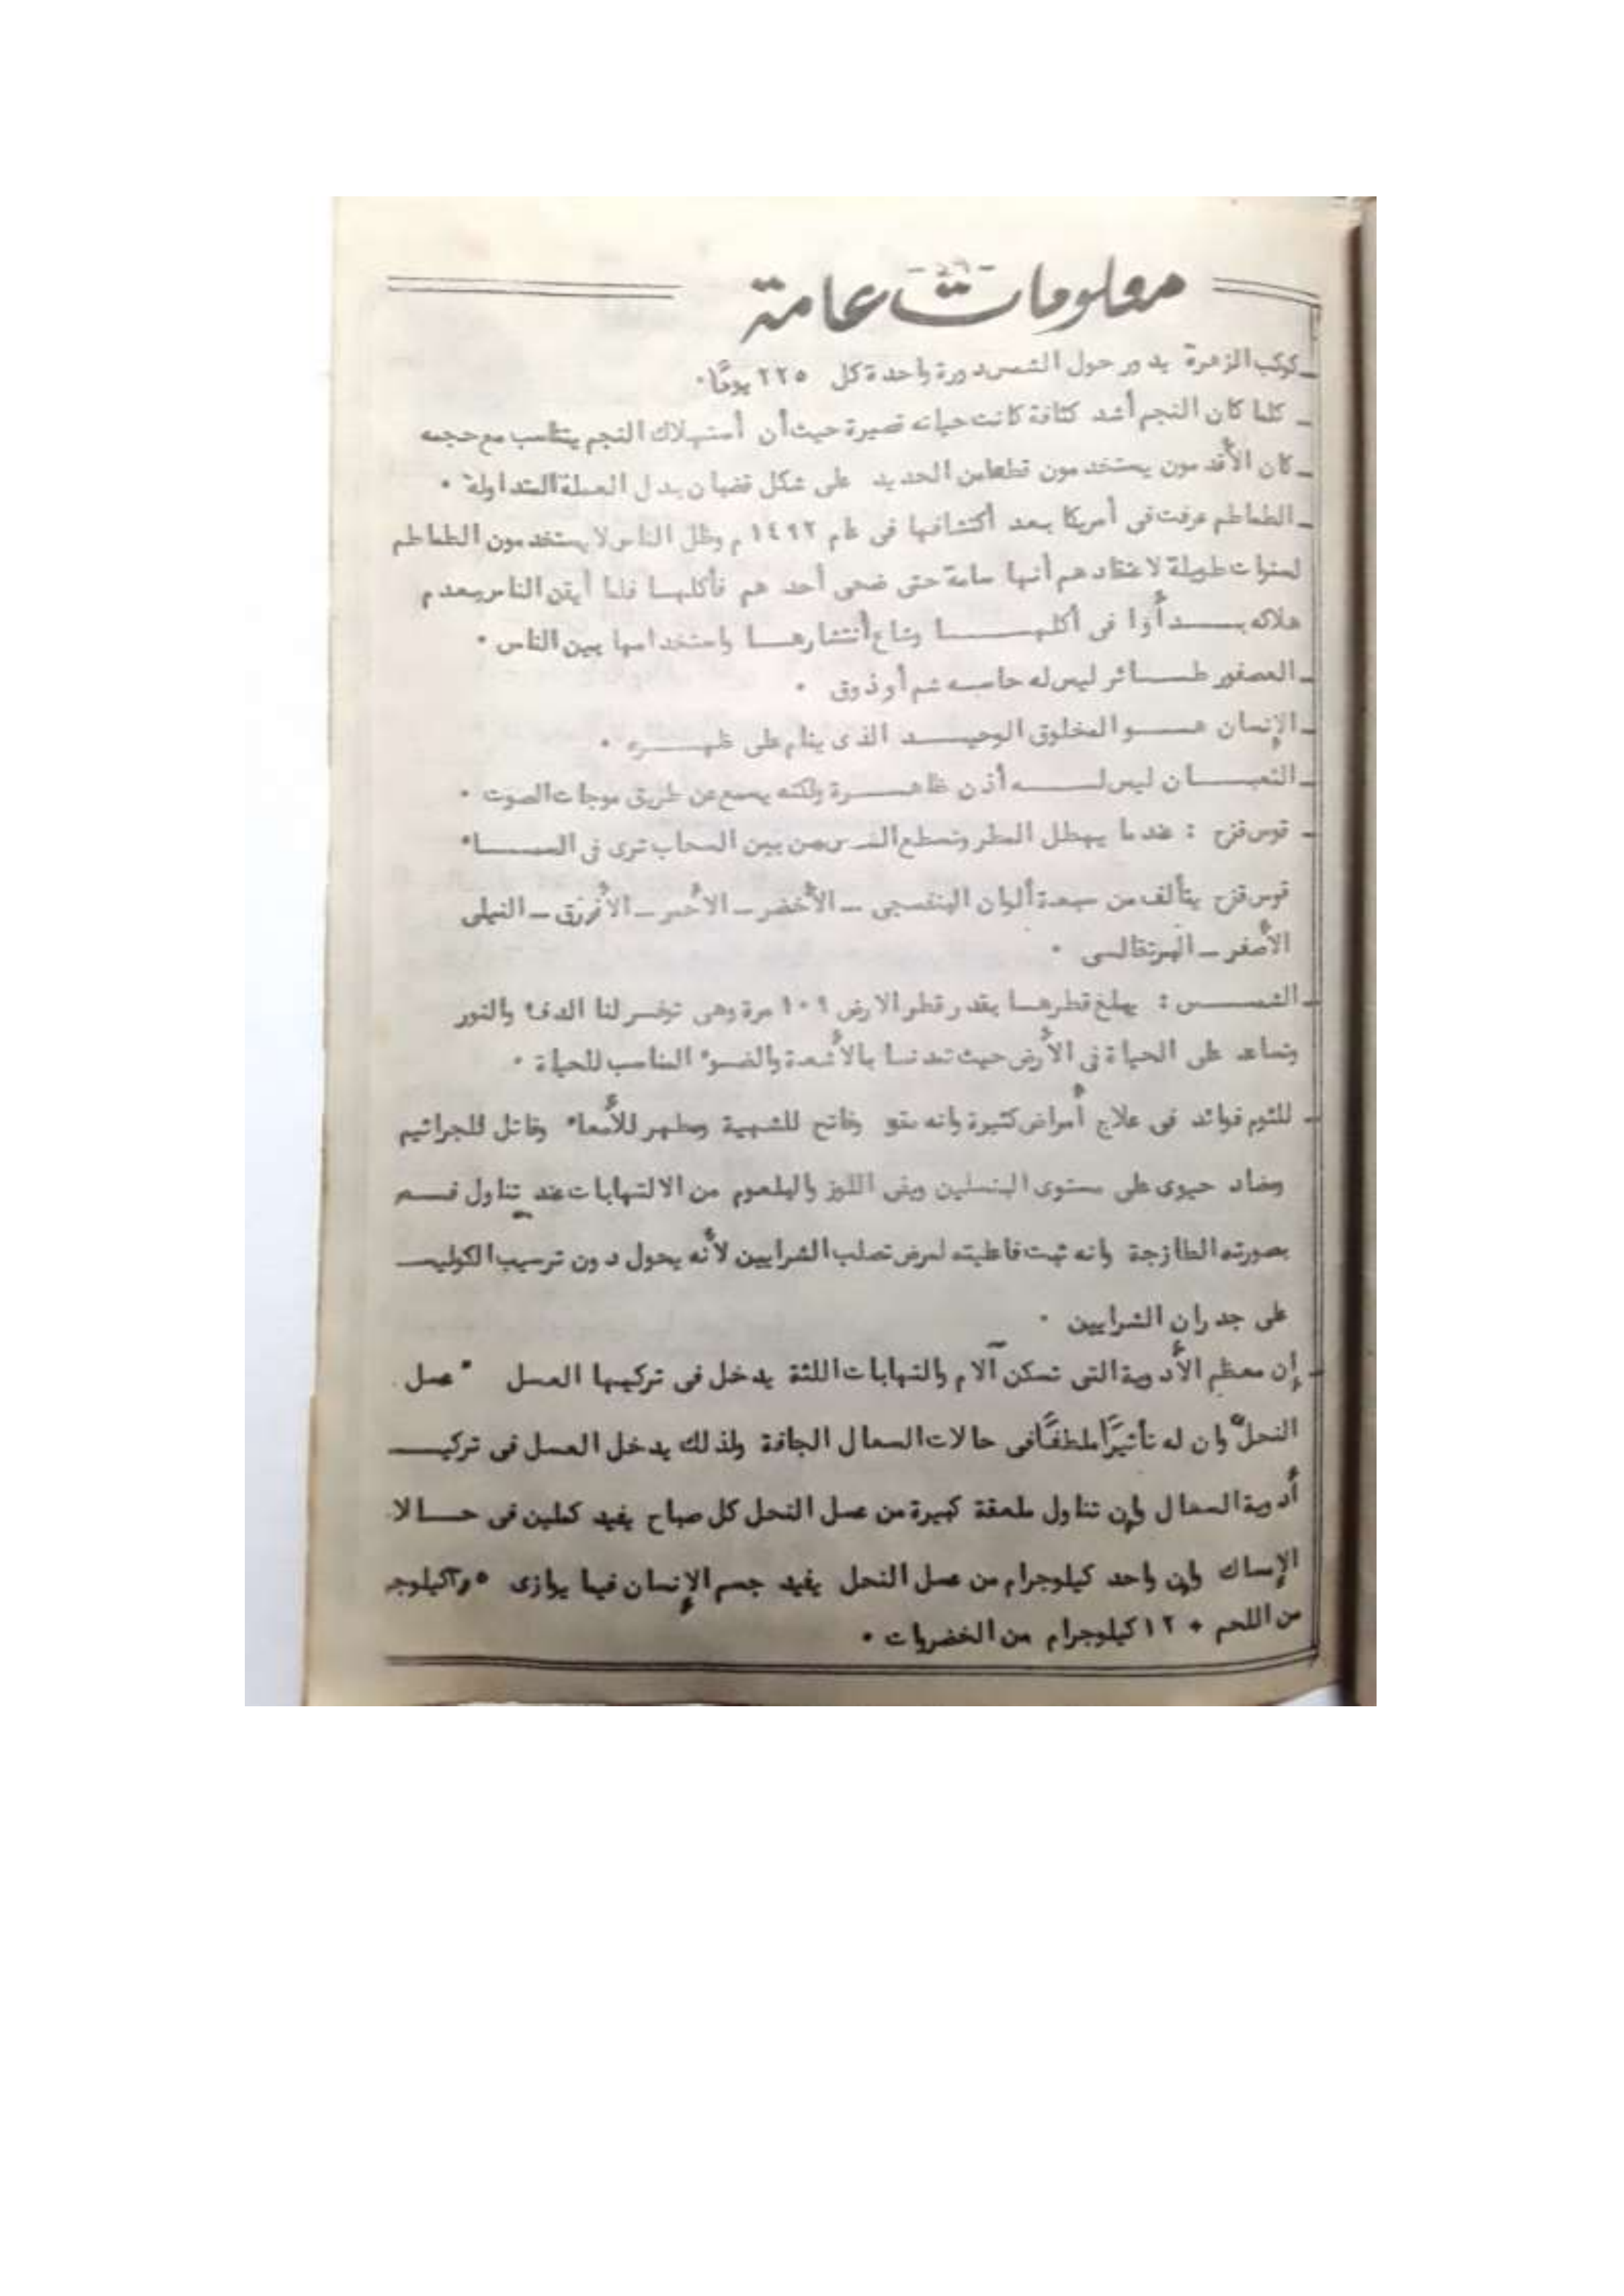 - ٢٦ -
معلومات عامة
ـ كوكب الزهرة يدور حول الشمس دورة واحدة كل ٢٢٥ يومًا ٠
ـ كلما كان النجم أشد كثافة كانت حياته قصيرة حيث أن أستهلاك النجم يتناسب مع حجمه
ـ كان الأقدمون يستخدمون قطعا من الحديد على شكل قضبان بدل العملة المتداولة ٠
ـ الطماطم عرفت في أمريكا بعد أكتشافها في عام ١٤٩٢ م وظل الناس لا يستخدمون الطماطم
لسنوات طويلة لاعتقادهم أنها سامة حتى ضحى أحد هم فأكلها فلما أيقن الناس بعدم
هلاكه بـــدأوا في أكلهـــا وشاع أنتشارهـــا واستخدامها بين الناس ٠
ـ العصفور طـــائر ليس له حاسه شم أو ذوق ٠
ـ الإنسان هـــو المخلوق الوحيـــد الذى ينام على ظهـــره ٠
ـ الثعبـــان ليس لـــه أذن ظاهـــرة ولكنه يسمع عن طريق موجات الصوت ٠
ـ قوس قزح : عندما يهطل المطر وتسطع الشمس من بين السحاب ترى في السمـــاء
قوس قزح يتألف من سبعة ألوان البنفسجى ـ الأخضر ـ الأحمر ـ الأزرق ـ النيلى
الأصفر ـ البرتقالـى ٠
ـ الشمـــس : يبلغ قطرهـــا بقدر قطر الارض ١٠٩ مرة وهى توفـر لنا الدفء والنور
وتساعد على الحياة في الأرض حيث تمدنـا بالأشعة والضـوء المناسب للحياة ٠
ـ للثوم فوائد في علاج أمراض كثيرة وانه مقو وفاتح للشهية ومطهر للأمعاء وقاتل للجراثيم
ومضاد حيوى على مستوى البنسلين ويقى اللوز والبلعوم من الالتهابات عند تناول فـــص
بصورته الطازجة وانه ثبت فاعليته لمرض تصلب الشرايين لأنه يحول دون ترسيب الكوليـــ
على جدران الشرايين ٠
ـ إن معظم الأدوية التى تسكن آلام والتهابات اللثة يدخل فى تركيبها العسل " عسل
النحل " وان له تأثيرًا ملطفًا فى حالات السعال الجافة ولذلك يدخل العسل فى تركيـــ
أدوية السعال وإن تناول ملعقة كبيرة من عسل النحل كل صباح يفيد كملين فى حـــالا
الإمساك وإن واحد كيلوجرام من عسل النحل يفيد جسم الإنسان فيما يوازى كيلوجـ
من اللحم + ١٢ كيلوجرام من الخضروات ٠